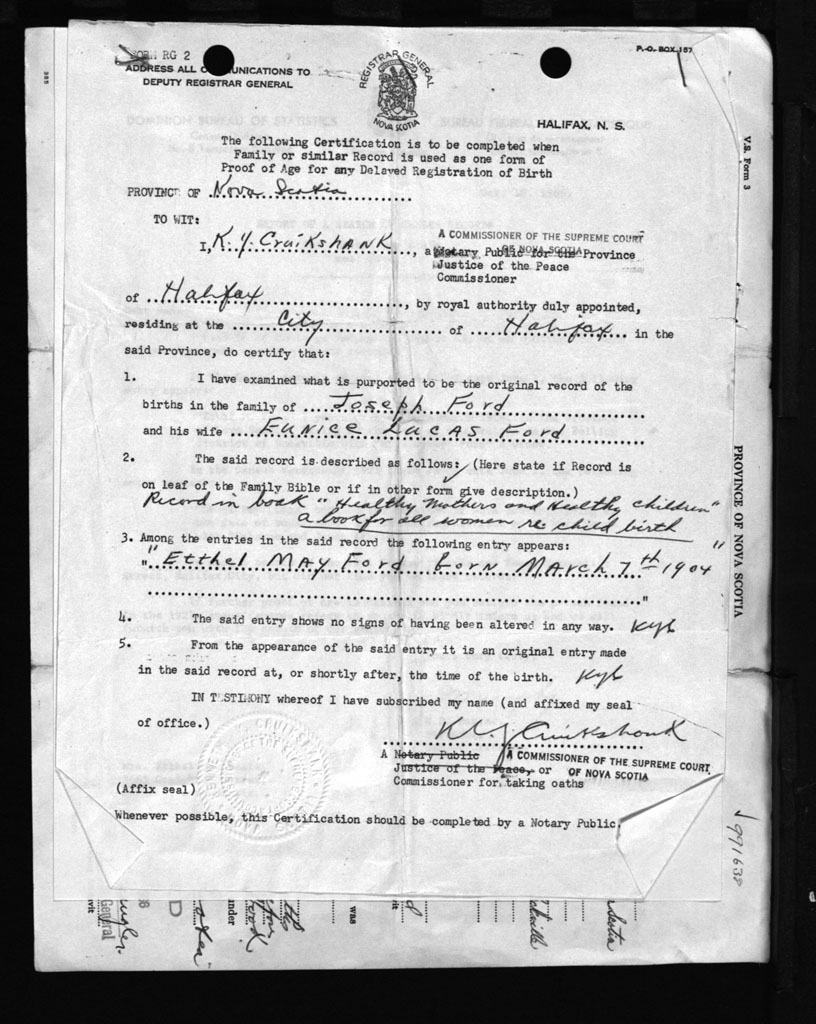 FORM RG 2
P.O. BOX 157
ADDRESS ALL COMMUNICATIONS TO
DEPUTY REGISTRAR GENERAL
REGISTRAR GENERAL
NOVA SCOTIA
HALIFAX, N. S.
The following Certification is to be completed when
Family or similar Record is used as one form of
Proof of Age for any Delayed Registration of Birth
PROVINCE OF Nova Scotia
TO WIT:
A COMMISSIONER OF THE SUPREME COURT
OF NOVA SCOTIA
I, K. Y. Cruikshank, a Notary Public for the Province
Justice of the Peace
Commissioner
of Halifax, by royal authority duly appointed,
residing at the City of Halifax in the
said Province, do certify that:
1. I have examined what is purported to be the original record of the
births in the family of Joseph Ford
and his wife Eunice Lucas Ford
2. The said record is described as follows: (Here state if Record is
on leaf of the Family Bible or if in other form give description.)
Record in book "Healthy Mothers and Healthy children"
a book for all women re child birth
3. Among the entries in the said record the following entry appears:
" "Etthel May Ford Born March 7th 1904"
"
4. The said entry shows no signs of having been altered in any way.
5. From the appearance of the said entry it is an original entry made
in the said record at, or shortly after, the time of the birth.
IN TESTIMONY whereof I have subscribed my name (and affixed my seal
of office.)
A Notary Public
A COMMISSIONER OF THE SUPREME COURT
Justice of the Peace, or
OF NOVA SCOTIA
Commissioner for taking oaths
(Affix seal)
Whenever possible, this Certification should be completed by a Notary Public.
V.S. Form 3
PROVINCE OF NOVA SCOTIA
991638
was
under
General